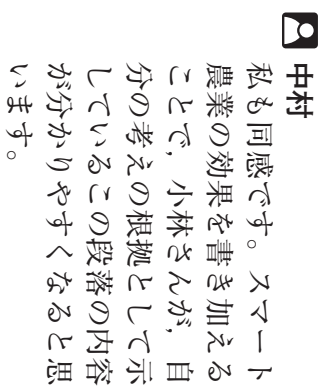 中村
私も同感です。スマート
農業の効果を書き加える
ことで，小林さんが，自
分の考えの根拠として示
しているこの段落の内容
が分かりやすくなると思
います。